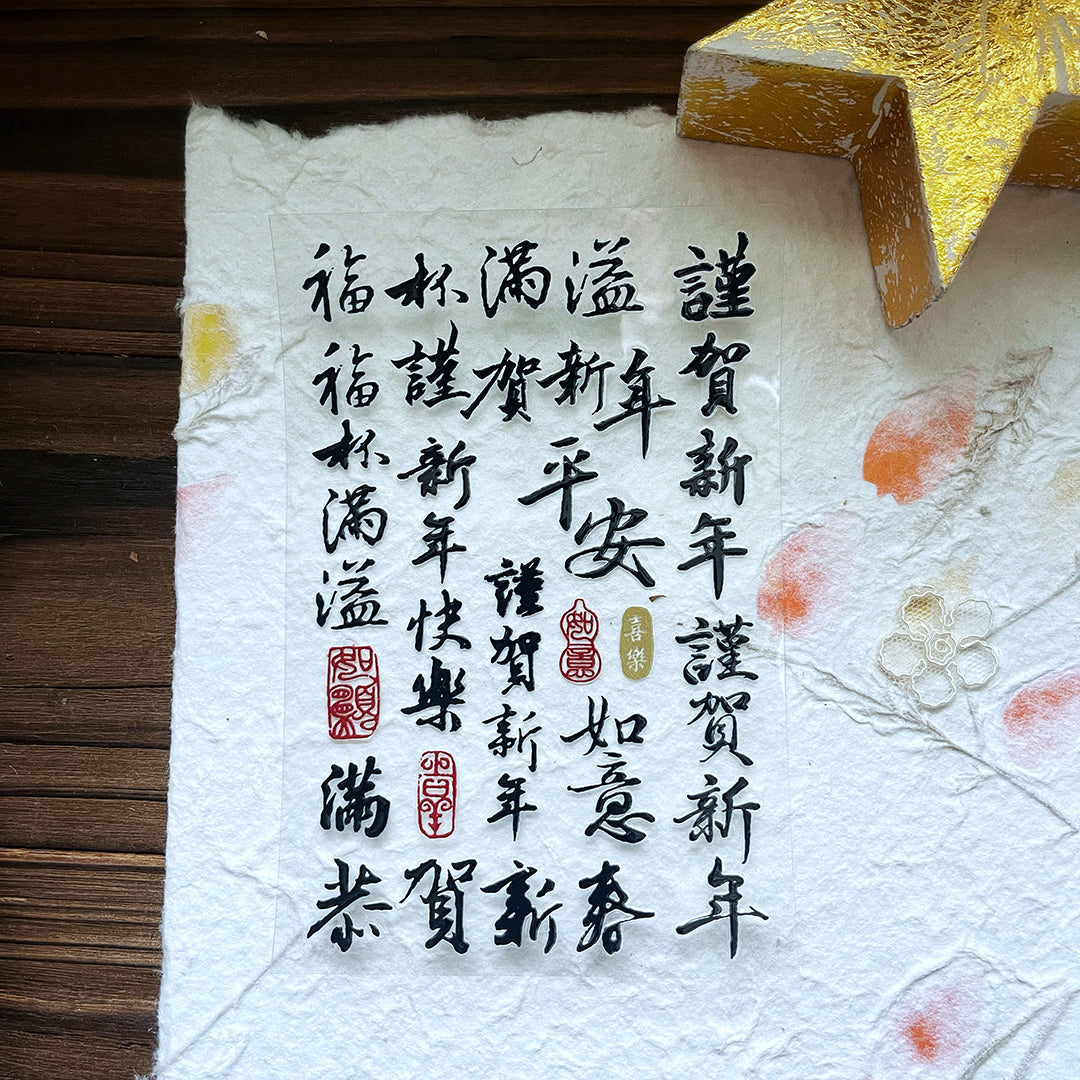 福杯滿溢
謹賀新年
福杯滿溢
如願
滿
新年快樂
謹賀新年
平安
如意
喜樂
如意
恭賀新春
謹賀新年
謹賀新年